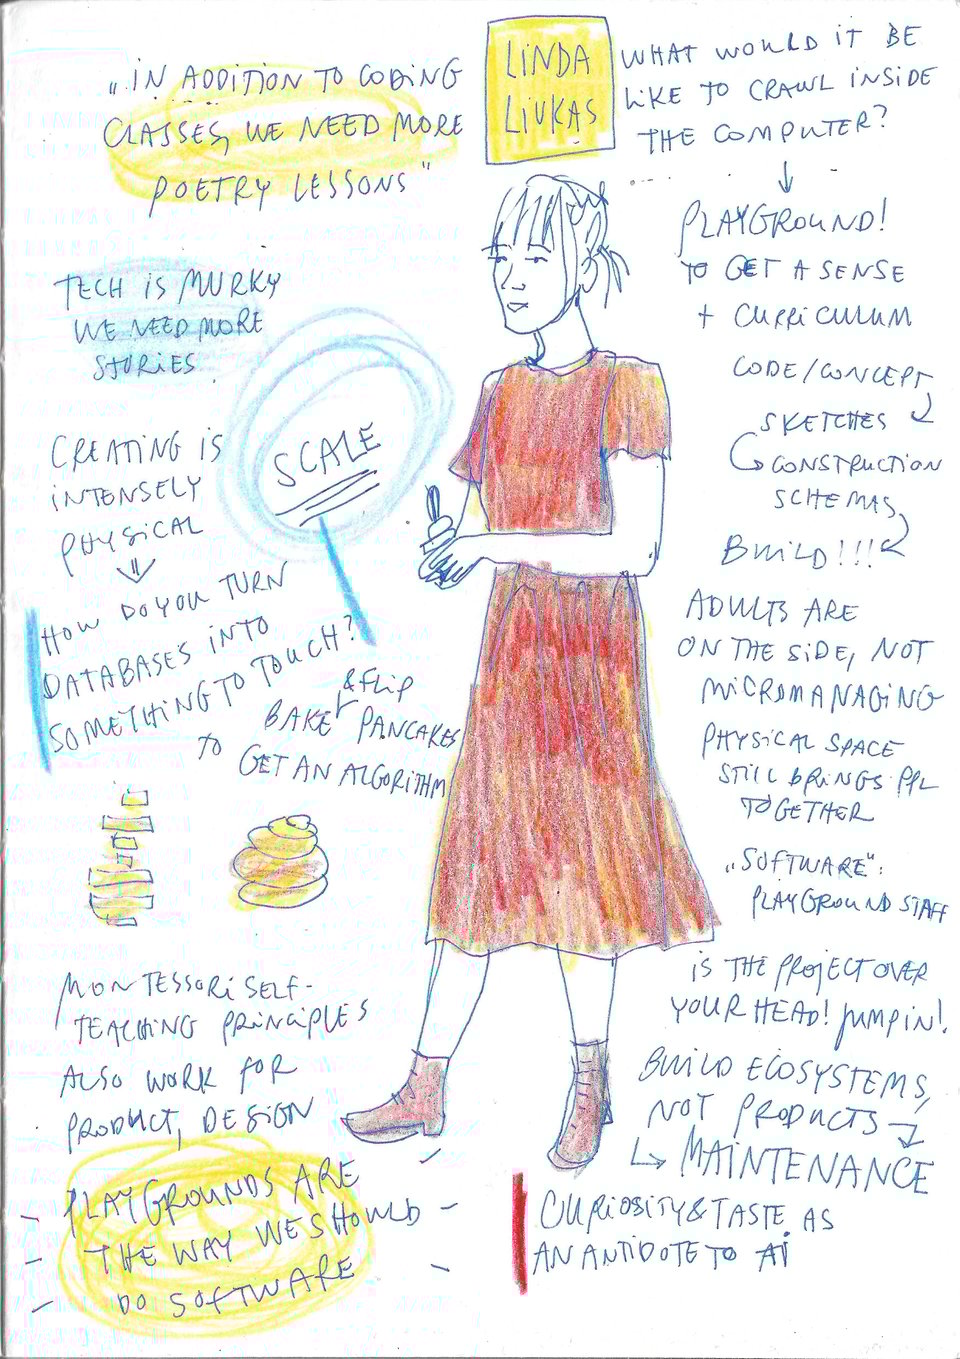 „IN ADDITION TO CODING
CLASSES, WE NEED MORE
POETRY LESSONS"
LINDA
LIUKAS
WHAT WOULD IT BE
LIKE TO CRAWL INSIDE
THE COMPUTER?
PLAYGROUND!
TO GET A SENSE
+ CURRICULUM
CODE/CONCEPT
SKETCHES
CONSTRUCTION
SCHEMAS
BUILD!!!
TECH IS MURKY
WE NEED MORE
STORIES
SCALE
CREATING IS
INTENSELY
PHYSICAL
HOW DO YOU TURN
DATABASES INTO
SOMETHING TO TOUCH?
& FLIP
BAKE PANCAKES
TO GET AN ALGORITHM
ADULTS ARE
ON THE SIDE, NOT
MICROMANAGING
PHYSICAL SPACE
STILL BRINGS PPL
TOGETHER
„SOFTWARE":
PLAYGROUND STAFF
MONTESSORI SELF-
TEACHING PRINCIPLES
ALSO WORK FOR
PRODUCT, DESIGN
PLAYGROUNDS ARE
THE WAY WE SHOULD
DO SOFTWARE
IS THE PROJECT OVER
YOUR HEAD! JUMP IN!
BUILD ECOSYSTEMS,
NOT PRODUCTS
MAINTENANCE
CURIOSITY & TASTE AS
AN ANTIDOTE TO AI